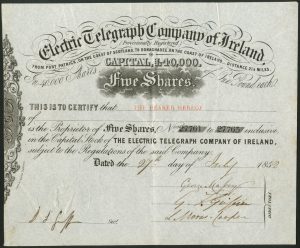 Electric Telegraph Company of Ireland,
Provisionally Registered
FROM PORT PATRICK, ON THE COAST OF SCOTLAND, TO DONAGHADEE, ON THE COAST OF IRELAND, DISTANCE 21½ MILES.
CAPITAL, £40,000,
Five Shares.
THIS IS TO CERTIFY that THE BEARER HEREOF
is the Proprietor of Five Shares, No to inclusive
in the Capital Stock of THE ELECTRIC TELEGRAPH COMPANY OF IRELAND,
subject to the Regulations of the said Company.
Dated the 27th day of July 1852
DIRECTORS.